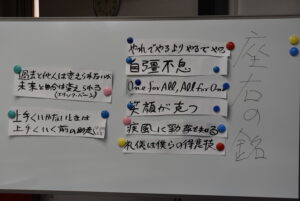 座右の銘
やれでやるよりやるでやる
自彊不息
One for All, All for One
笑顔が克つ
疾風に勁草を知る
礼儀は僕らの得意技
過去と他人は変えられないが
未来と自分は変えられる
(エリック・バーン)
上手くいかないときは
上手くいく前の助走